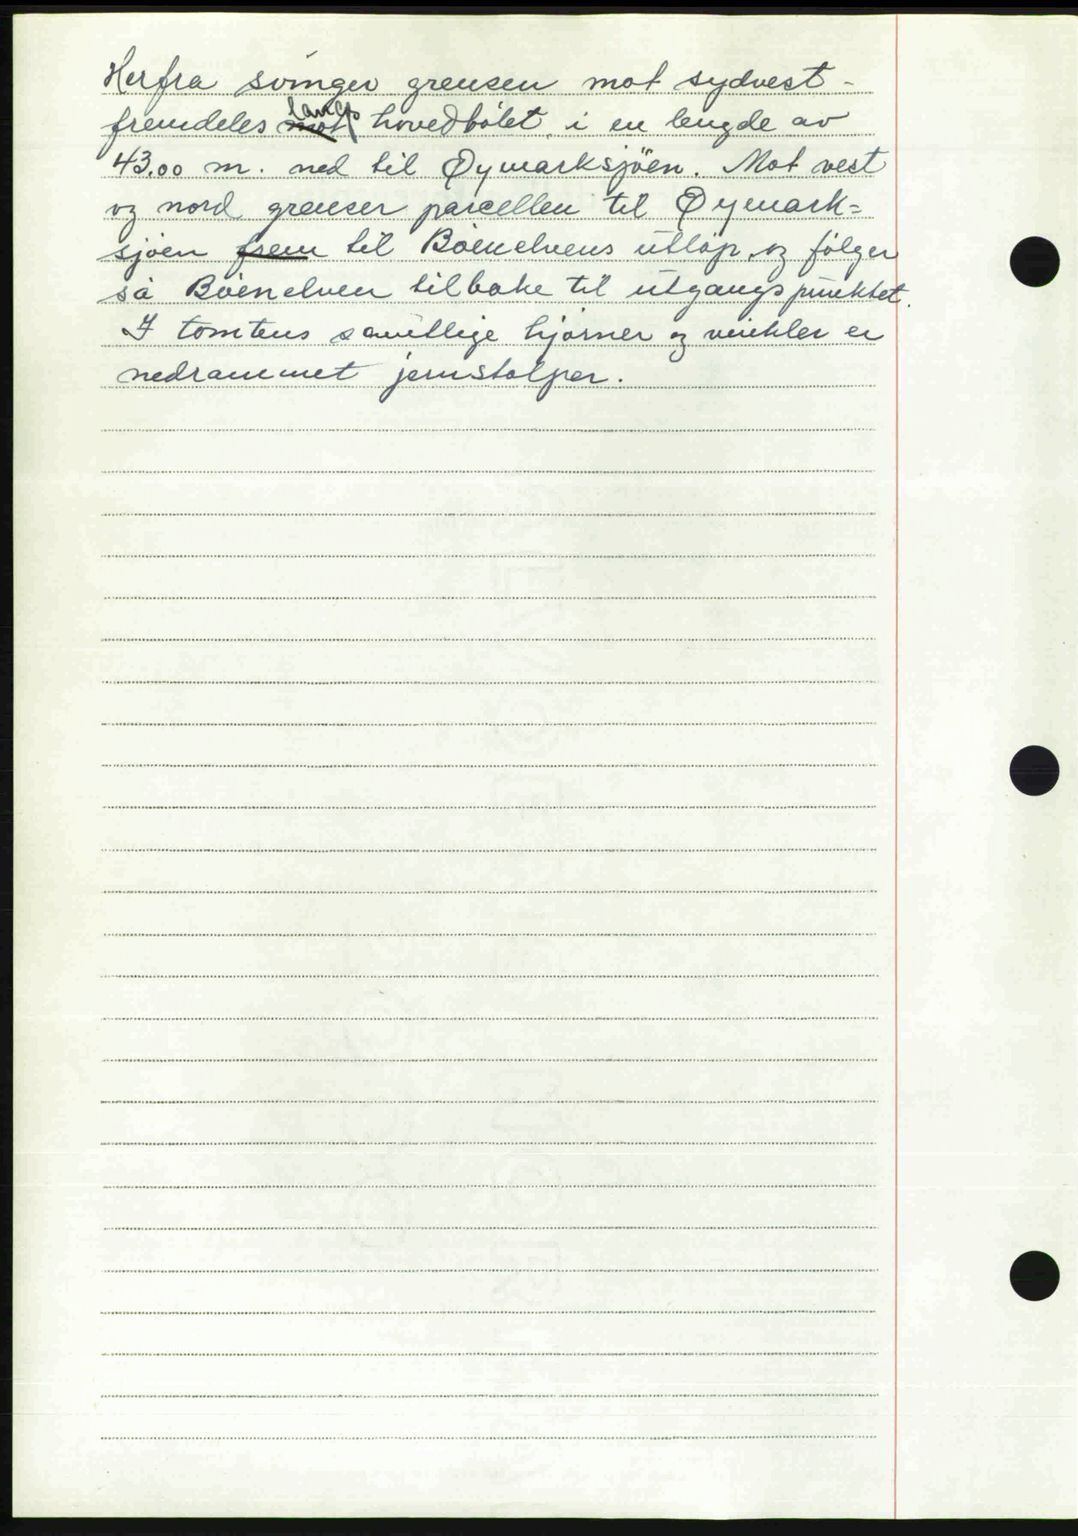 Herfra svinger grensen mot sydvest -
fremdeles langs hovedbölet, i en lengde av
43.00 m. ned til Øymarksjöen. Mot vest
og nord grenser parcellen til Øymark=
sjöen frem til Böenelvens utlöp, og fölger
så Böenelven tilbake til utgangspunktet.
I tomtens samtlige hjörner og vinkler er
nedrammet jernstolper.